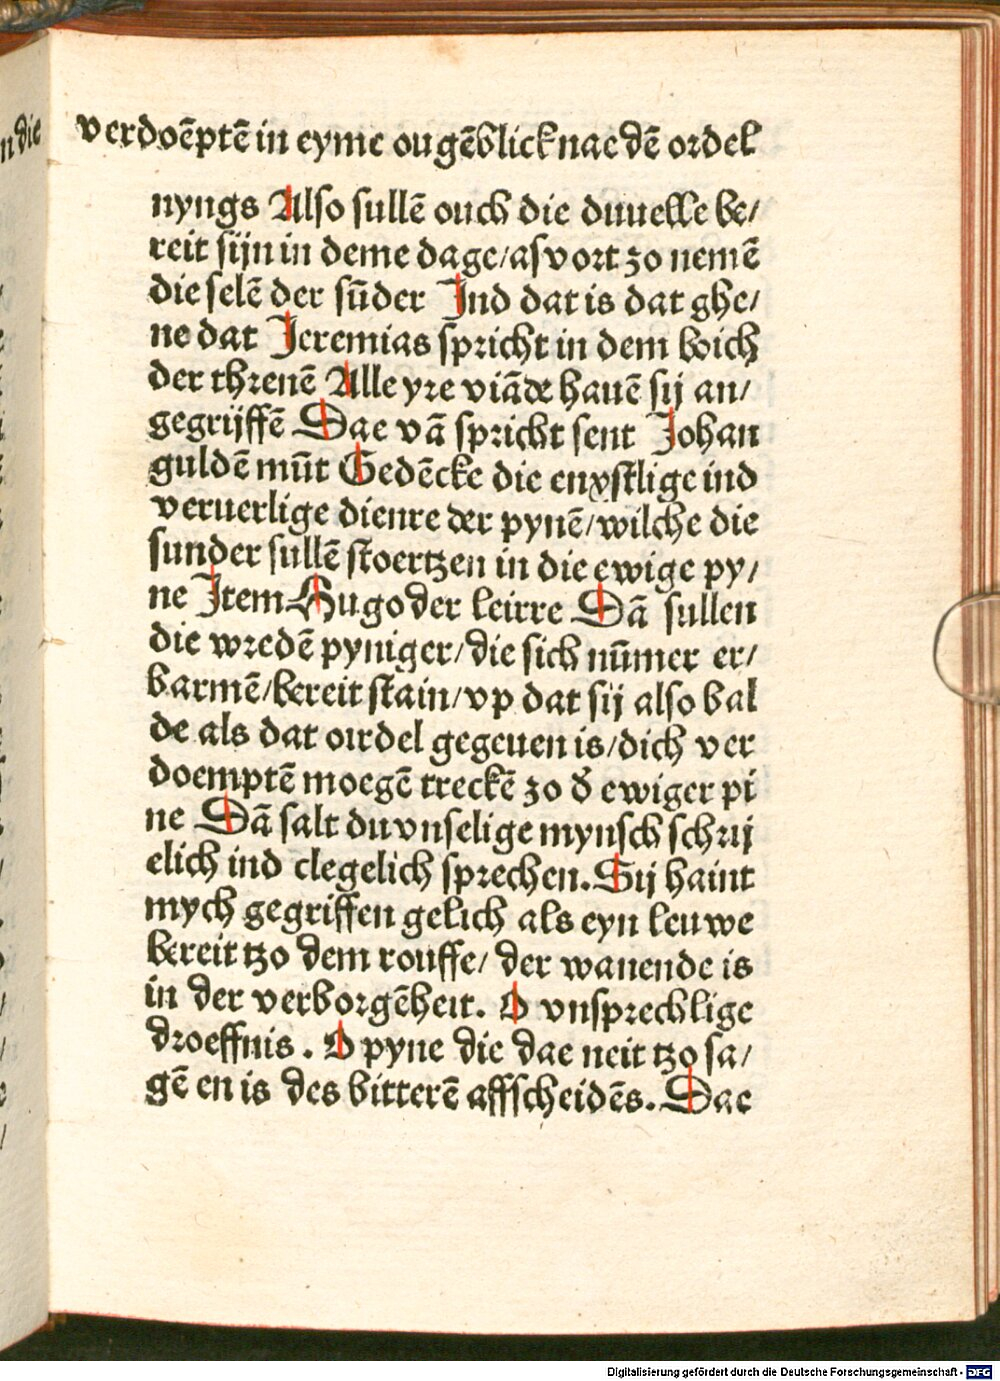 n die
verdoēptē in eyme ougēblick nae dē ordel
nyngs Also sullē ouch die duuelle be/
reit sijn in deme dage/as vort zo nemē
die selē der sūder Ind dat is dat ghe/
ne dat Jeremias spricht in dem boich
der threnē Alle yre viāde hauē sij an/
gegrijffē Dae vā spricht sent Johan
guldē mūt Gedēcke die enxstlige ind
veruerlige dienre der pynē/wilche die
sunder sullē stoertzen in die ewige py/
ne Item Hugo der leirre Dā sullen
die wredē pyniger/die sich nūmer er/
barmē/bereit stain/vp dat sij also bal
de als dat oirdel gegeuen is/dich ver
doemptē moegē treckē zo d̄ ewiger pi
ne Dā salt du vnselige mynsch schrij
elich ind clegelich sprechen. Sij haint
mych gegriffen gelich als eyn leuwe
bereit tzo dem rouffe/ der wanende is
in der verborgēheit. O vnsprechlige
droeffnis. O pyne die dae neit tzo sa/
gē en is des bitterē affscheidēs. Dae
Digitalisierung gefördert durch die Deutsche Forschungsgemeinschaft - DFG